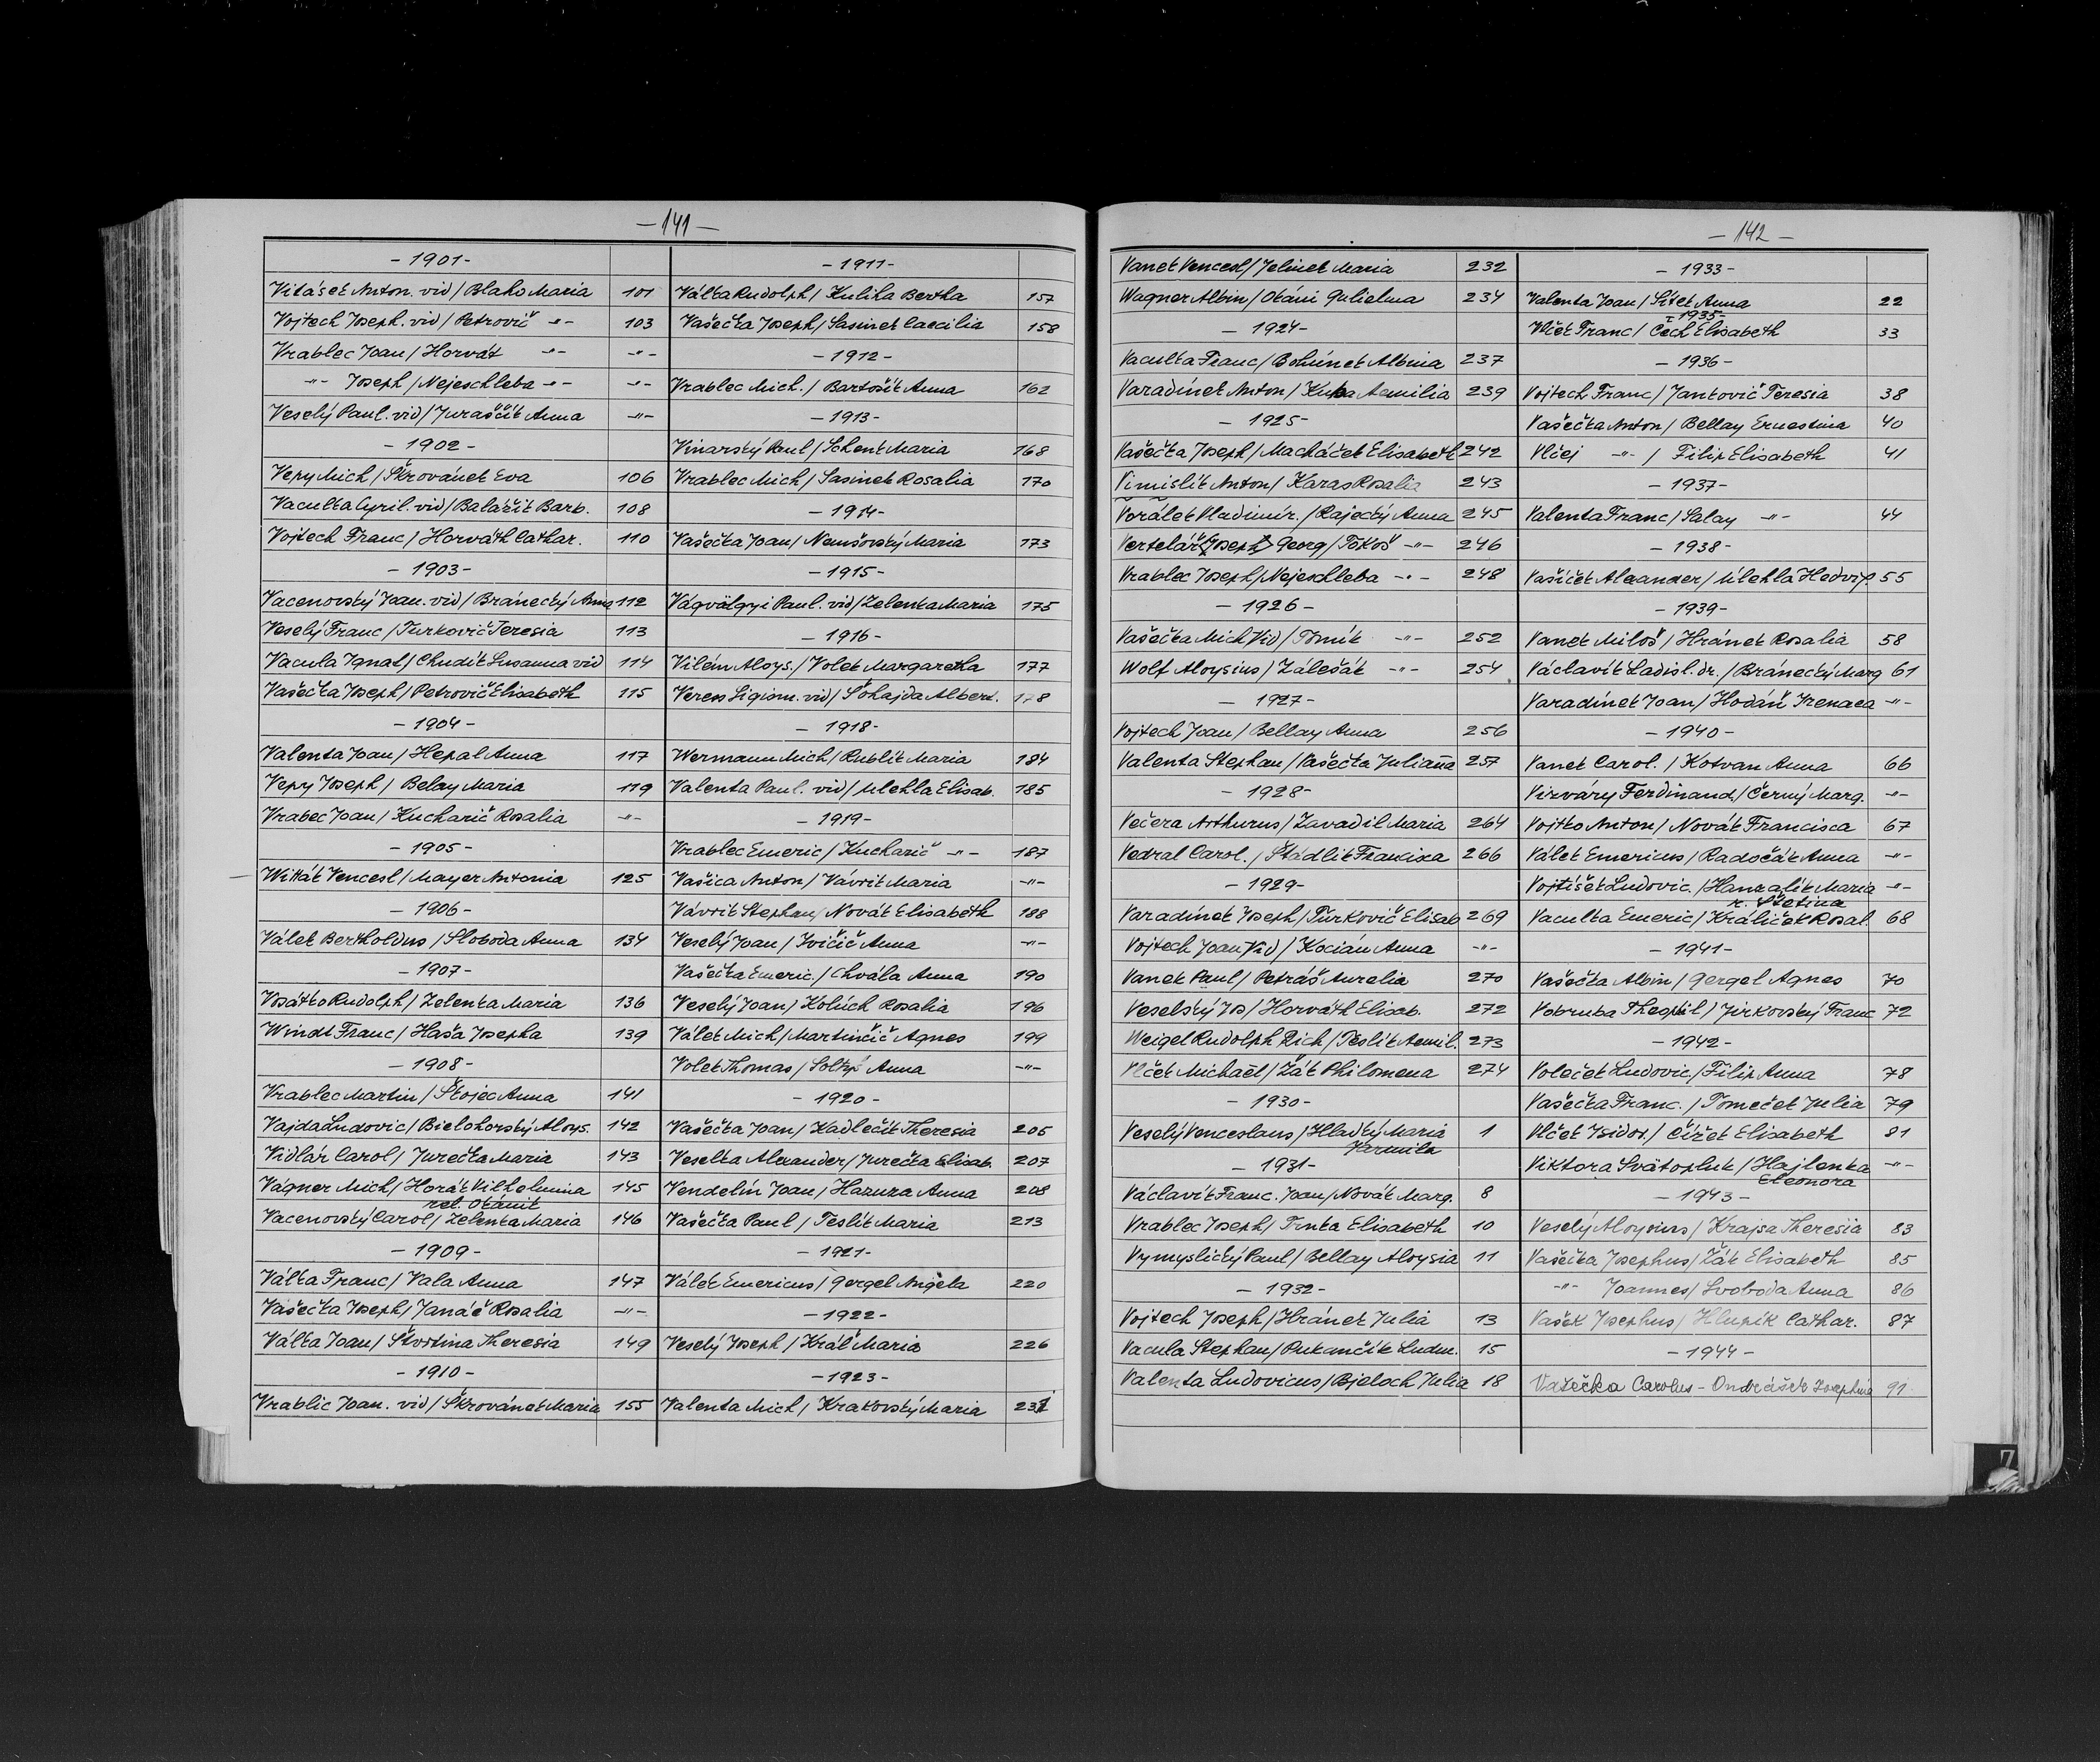 - 141 -
- 1901 -
Vitásek Anton. vid / Blaho Maria 101
Vojtech Joseph. vid / Petrovič -"- 103
Vrablec Joan / Horvát -"- -"-
-"- Joseph / Nejeschleba -"- -"-
Veselý Paul. vid / Juraščík Anna -"-
- 1902 -
Vepy Mich / Škrovánek Eva 106
Vaculka Cyril. vid / Balážik Barb. 108
Vojtech Franc / Horváth Cathar. 110
- 1903 -
Vacenovský Joan. vid / Bránecký Anna 112
Veselý Franc / Turkovič Teresia 113
Vacula Ignat / Chudík Susanna vid 114
Vašečka Joseph / Petrovič Elisabeth 115
- 1904 -
Valenta Joan / Hepal Anna 117
Vepy Joseph / Belay Maria 119
Vrabec Joan / Kucharič Rosalia -"-
- 1905 -
Witták Vencesl / Mayer Antonia 125
- 1906 -
Válek Bertholdus / Sloboda Anna 134
- 1907 -
Vosátko Rudolph / Zelenka Maria 136
Windt Franc / Haša Josepha 139
- 1908 -
Vrablec Martin / Štojec Anna 141
Vajda Ludovic / Bielohorský Aloys. 142
Vidlár Carol / Jurečka Maria 143
Vágner Mich / Horák Vilhelmina 145
rel. Okánik
Vacenovský Carol / Zelenka Maria 146
- 1909 -
Válka Franc / Vala Anna 147
Vašečka Joseph / Janáč Rosalia -"-
Válka Joan / Štvrtina Theresia 149
- 1910 -
Vrablic Joan. vid / Škrovánek Maria 155
- 1911 -
Válka Rudolph / Kuliha Bertha 157
Vašečka Joseph / Sasinek Caecilia 158
- 1912 -
Vrablec Mich. / Bartošík Anna 162
- 1913 -
Vinarský Paul / Schenk Maria 168
Vrablec Mich / Sasinek Rosalia 170
- 1914 -
Vašečka Joan / Nemšovský Maria 173
- 1915 -
Vágvölgyi Paul. vid / Zelenka Maria 175
- 1916 -
Vilém Aloys. / Volek Margaretha 177
Veress Sigism. vid / Šohajda Albert. 178
- 1918 -
Wermann Mich / Rublík Maria 184
Valenta Paul. vid / Mlehla Elisab. 185
- 1919 -
Vrablec Emeric / Kucharič -"- 187
Vašica Anton / Vávrik Maria -"-
Vávrik Stephan / Novák Elisabeth 188
Veselý Joan / Ivičič Anna -"-
Vašečka Emeric. / Chvála Anna 190
Veselý Joan / Kolúch Rosalia 196
Válek Mich / Martinčič Agnes 199
Volek Thomas / Soltýs Anna -"-
- 1920 -
Vašečka Joan / Kadlečík Theresia 205
Veselka Alexander / Jurečka Elisab. 207
Vendelín Joan / Hazuza Anna 208
Vašečka Paul / Teslík Maria 213
- 1921 -
Válek Emericus / Gergel Angela 220
- 1922 -
Veselý Joseph / Kráľ Maria 226
- 1923 -
Valenta Mich / Krakovský Maria 231
- 142 -
Vanek Vencesl / Jelinek Maria 232
Wagner Albin / Okáni Gulielma 234
- 1924 -
Vaculka Franc / Bohúnek Albina 237
Varadínek Anton / Kuba Aemilia 239
- 1925 -
Vašečka Joseph / Macháček Elisabeth 242
Vimislík Anton / Karas Rosalia 243
Vorálek Vladimír. / Rajecký Anna 245
Vertelář (Joseph) Georg / Tököš -"- 246
Vrablec Joseph / Nejeschleba -"- 248
- 1926 -
Vašečka Mich Vid / Tomík -"- 252
Wolf Aloysius / Zálešák -"- 254
- 1927 -
Vojtech Joan / Bellay Anna 256
Valenta Stephan / Vašečka Juliana 257
- 1928 -
Večera Arthurus / Zavadil Maria 264
Vedral Carol. / Štádlik Francisca 266
- 1929 -
Varadínek Joseph / Turkovič Elisab 269
Vojtech Joan Vid / Kocián Anna -"-
Vanek Paul / Petráš Aurelia 270
Veselský Jos / Horváth Elisab. 272
Weigel Rudolph Rich / Teslík Aemil. 273
Vlček Michaël / Žák Philomena 274
- 1930 -
Veselý Venceslaus / Hladký Maria 1
Jarmila
- 1931 -
Václavík Franc. Joan / Novák Marg. 8
Vrablec Joseph / Trnka Elisabeth 10
Vymyslický Paul / Bellay Aloysia 11
- 1932 -
Vojtech Joseph / Hránek Julia 13
Vacula Stephan / Pukančík Ludm. 15
Valenta Ludovicus / Bjeloch Julia 18
- 1933 -
Valenta Joan / Sítek Anna 22
- 1935 -
Vlček Franc / Čech Elisabeth 33
- 1936 -
Vojtech Franc / Jankovič Teresia 38
Vašečka Anton / Bellay Ernestina 40
Vlčej -"- / Filip Elisabeth 41
- 1937 -
Valenta Franc / Salay -"- 44
- 1938 -
Vašíček Alexander / Úlehla Hedvig. 55
- 1939 -
Vanek Miloš / Hránek Rosalia 58
Václavík Ladisl. dr. / Bránecký Marg 61
Varadínek Joan / Hodáň Irenaea -"-
- 1940 -
Vanek Carol. / Kotvan Anna 66
Vizváry Ferdinand. / Černý Marg. -"-
Vojtko Anton / Novák Francisca 67
Válek Emericus / Radočák Anna -"-
Vojtíšek Ludovic. / Hanzalík Maria -"-
r. Štetina
Vaculka Emeric / Králiček Rosal. 68
- 1941 -
Vašečka Albin / Gergel Agnes 70
Vobruba Theophil / Jirkovský Franc 72
- 1942 -
Voleček Ludovic. / Filip Anna 78
Vašečka Franc. / Tomeček Julia 79
Vlček Isidor. / Čížek Elisabeth 81
Viktora Svätopluk / Hajlenka -"-
Eleonora
- 1943 -
Veselý Aloysius / Krajsa Theresia 83
Vašečka Josephus / Žák Elisabeth 85
-"- Joannes / Svoboda Anna 86
Vašek Josephus / Hlupík Cathar. 87
- 1944 -
Vašečka Carolus - Ondrášek Josephina 91
7